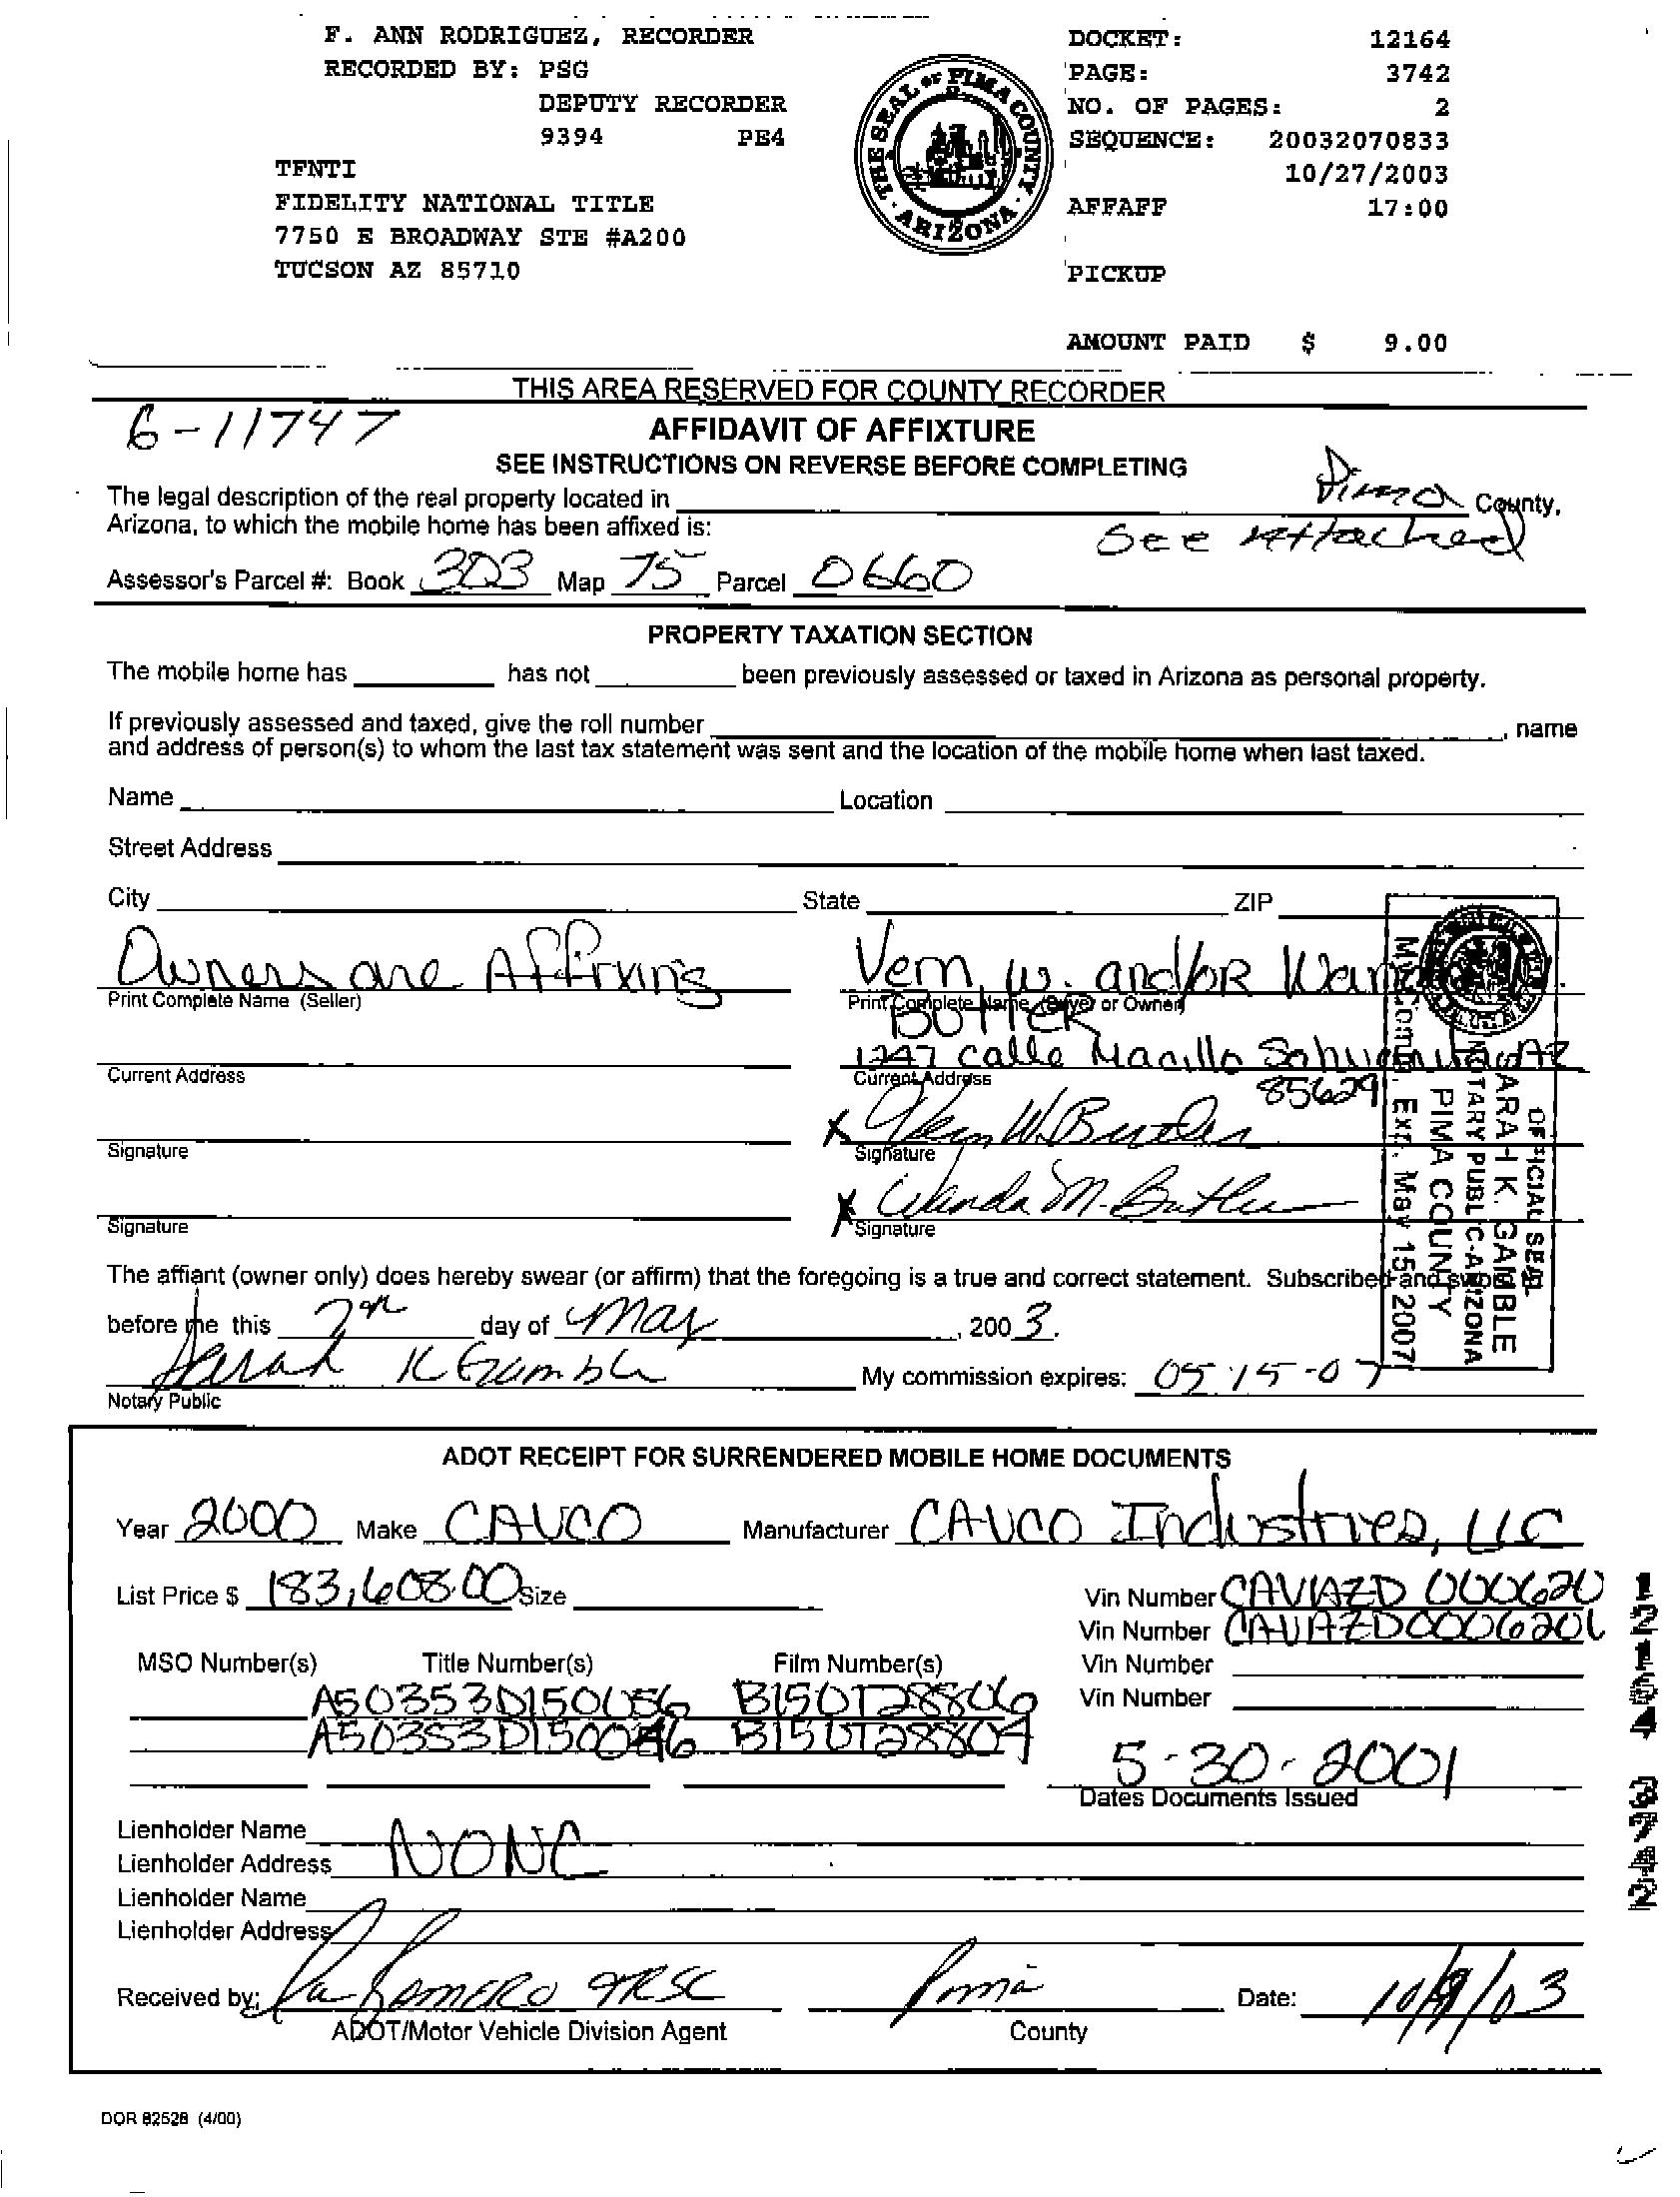 F. ANN RODRIGUEZ, RECORDER
RECORDED BY: PSG
DEPUTY RECORDER
9394 PE4
TFNTI
FIDELITY NATIONAL TITLE
7750 E BROADWAY STE #A200
TUCSON AZ 85710
THE SEAL OF PIMA COUNTY · ARIZONA ·
DOCKET: 12164
PAGE: 3742
NO. OF PAGES: 2
SEQUENCE: 20032070833
10/27/2003
AFFAFF 17:00
PICKUP
AMOUNT PAID $ 9.00
THIS AREA RESERVED FOR COUNTY RECORDER
6-11747
AFFIDAVIT OF AFFIXTURE
SEE INSTRUCTIONS ON REVERSE BEFORE COMPLETING
The legal description of the real property located in Pima County,
Arizona, to which the mobile home has been affixed is: See Attached
Assessor's Parcel #: Book 303 Map 75 Parcel 0660
PROPERTY TAXATION SECTION
The mobile home has has not been previously assessed or taxed in Arizona as personal property.
If previously assessed and taxed, give the roll number , name
and address of person(s) to whom the last tax statement was sent and the location of the mobile home when last taxed.
Name Location
Street Address
City State ZIP
Owners are Affixing Vern W. and/or
Print Complete Name (Seller) Print Complete Name (Buyer or Owner)
Butler
1247 Calle Sahuarita AZ
Current Address Current Address
85629
X Vern W. Butler
Signature Signature
X Wanda M. Butler
Signature Signature
OFFICIAL SEAL
SARAH K. GAMBLE
NOTARY PUBLIC-ARIZONA
PIMA COUNTY
My Comm. Exp. May 15, 2007
The affiant (owner only) does hereby swear (or affirm) that the foregoing is a true and correct statement. Subscribed and sworn to
before me this day of May , 200 3.
Sarah K Gamble My commission expires: 05-15-07
Notary Public
ADOT RECEIPT FOR SURRENDERED MOBILE HOME DOCUMENTS
Year 2000 Make CAVCO Manufacturer CAVCO Industries, LLC
List Price $ 183,608.00 Size Vin Number
Vin Number
MSO Number(s) Title Number(s) Film Number(s) Vin Number
Vin Number
5-30-2001
Dates Documents Issued
Lienholder Name NONE
Lienholder Address
Lienholder Name
Lienholder Address
Received by: Romero Pima Date:
ADOT/Motor Vehicle Division Agent County
DOR 82528 (4/00)